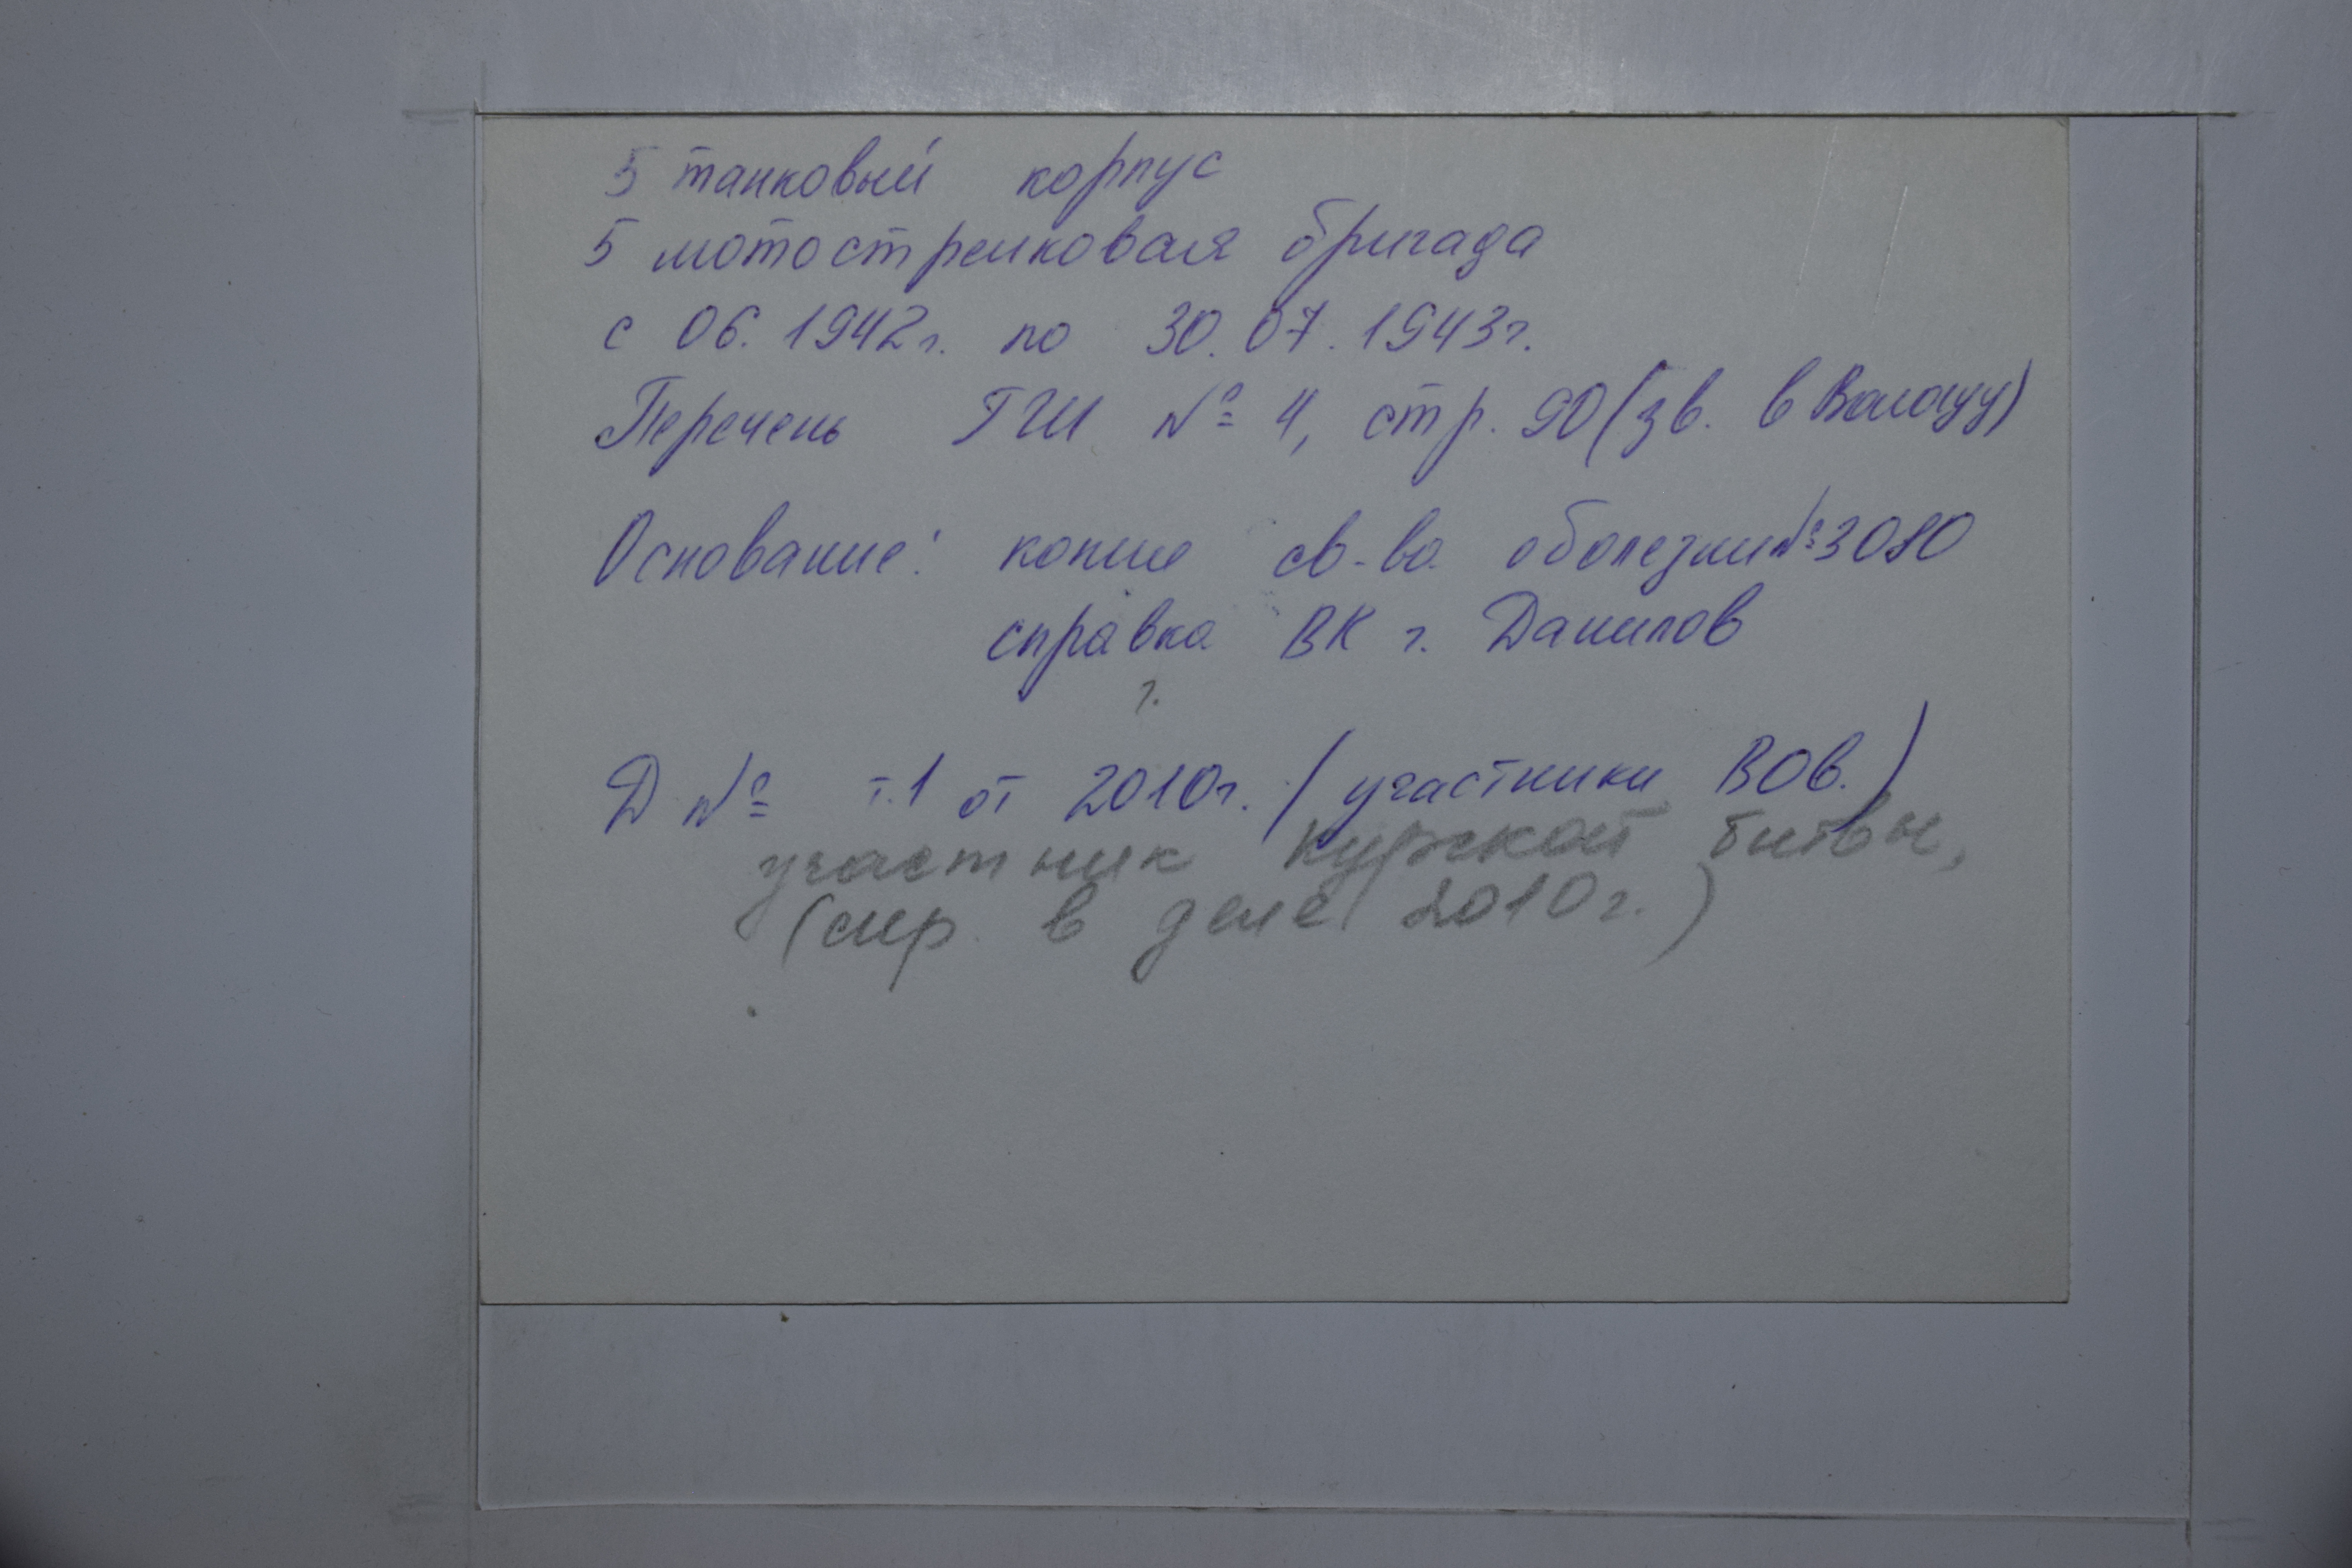 5 танковый корпус
5 мотострелковая бригада
с 06.1942г. по 30.07.1943г.
Перечень ГШ № 4, стр. 90 (зв. в Вологду)
Основание: копия св-ва о болезни №3080
справка ВК г. Данилов
г.
Д № т.1 от 2010г. (участники ВОВ.)
участник Курской битвы,
(см в деле 2010г.)